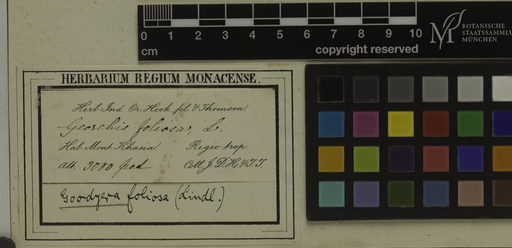 0 1 2 3 4 5 6 7 8 9 10
cm
copyright reserved
BOTANISCHE
STAATSSAMMLU
MÜNCHEN
HERBARIUM REGIUM MONACENSE.
Herb. Ind. Or. Hook. fil. & Thomson
Georchis foliosa, L.
Hab. Mont. Khasia Regio trop.
Alt. 3000 ped. Coll. J.D.H. & T.T.
Goodyera foliosa (Lindl.)